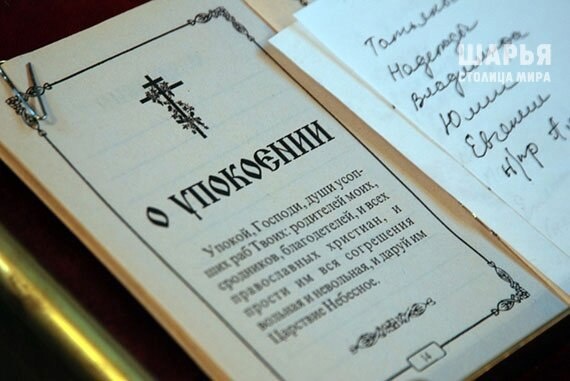 О УПОКОЕНИИ
Упокой, Господи, души усоп-
ших раб Твоих: родителей моих,
сродников, благодетелей, и всех
православных христиан, и
прости им вся согрешения
вольная и невольная, и даруй им
Царствие Небесное.
14
Надежда
Владимира
Евгении
н/пр
ШАРЬЯ
СТОЛИЦА МИРА